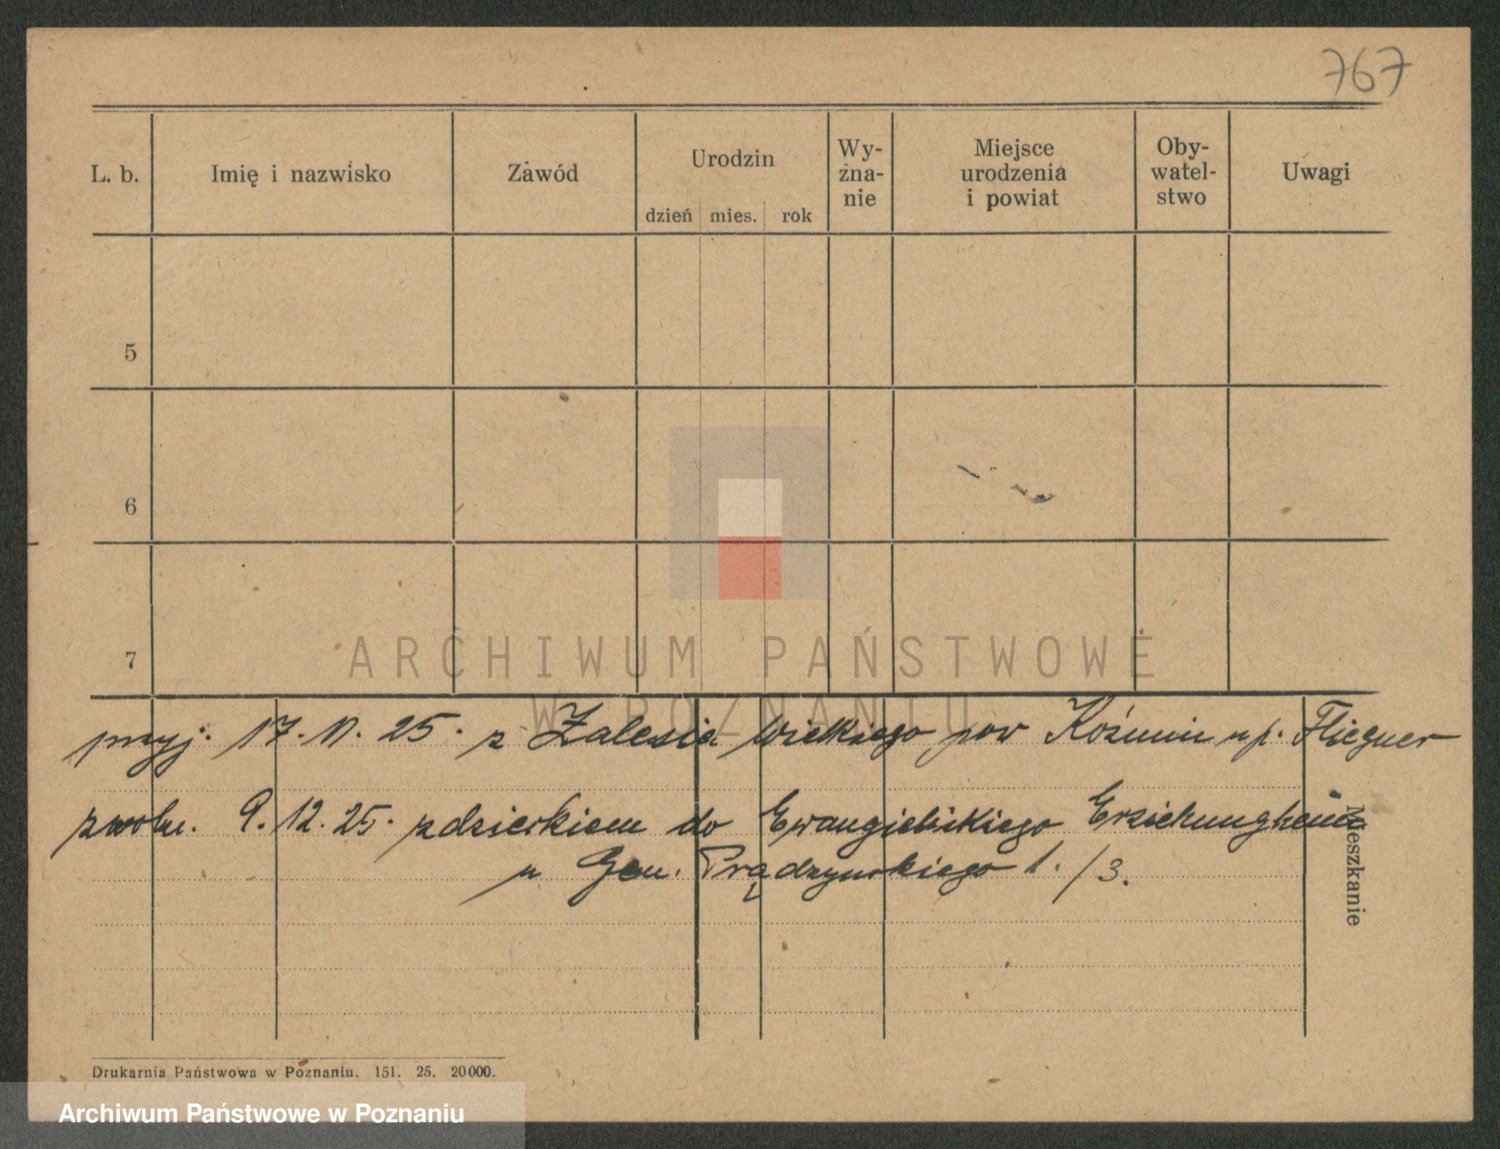 767
L. b. Imię i nazwisko Zawód Urodzin dzień mies. rok Wy-
zna-
nie Miejsce
urodzenia
i powiat Oby-
watel-
stwo Uwagi
5
6
7
ARCHIWUM PAŃSTWOWE
W POZNANIU
przyj. 17. 11. 25. z Zalesia Wielkiego pow Koźmin np. Fliegner
zwoln. 9. 12. 25. z dzieckiem do Ewangielickiego Erziehungheim
u Gen. Prądzynskiego 1./3.
Mieszkanie
Drukarnia Państwowa w Poznaniu. 151. 25. 20000.
Archiwum Państwowe w Poznaniu